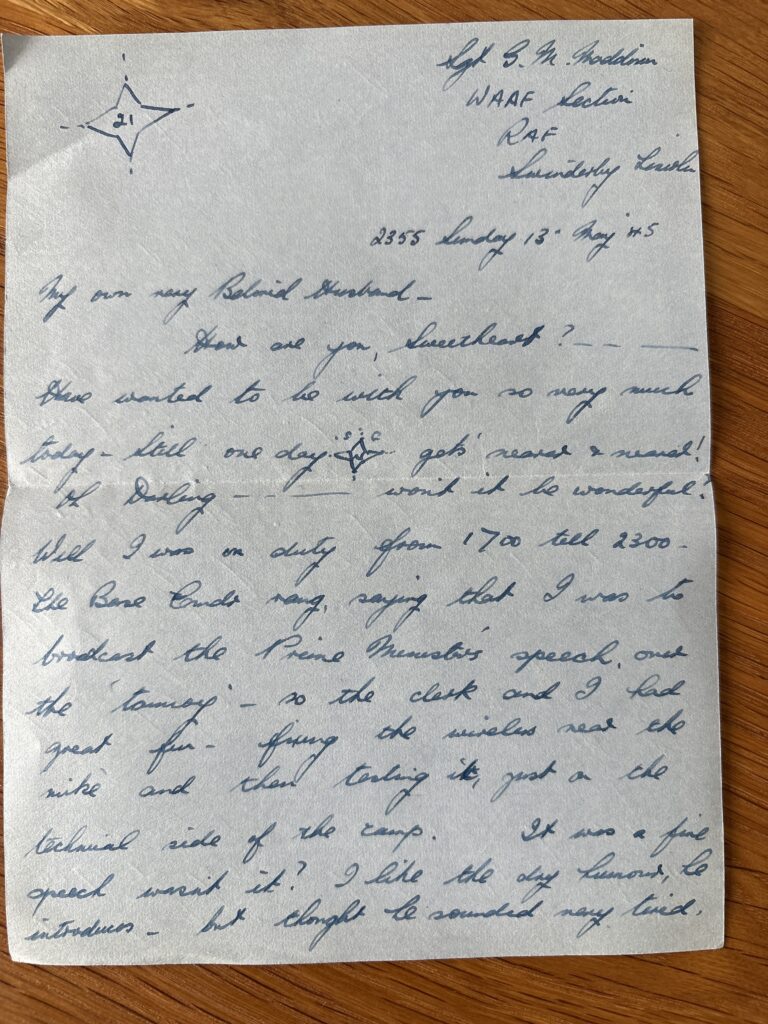 21
Sgt G. M.
WAAF Section
RAF
Swinderby Lincoln
2355 Sunday 13th May 45
My own very Beloved Husband -
How are you, Sweetheart? - - -
Have wanted to be with you so very much
today - Still one day gets nearer & nearer!
Oh Darling - - - won't it be wonderful?
Well I was on duty from 1700 till 2300 -
the Base Cmdr rang, saying that I was to
brodcast the Prime Minister's speech, over
the 'tannoy' - so the clerk and I had
great fun - fixing the wireless near the
mike and then testing it, just on the
technical side of the camp. It was a fine
speech wasn't it? I like the dry humour, he
introduces - but thought he sounded very tired.